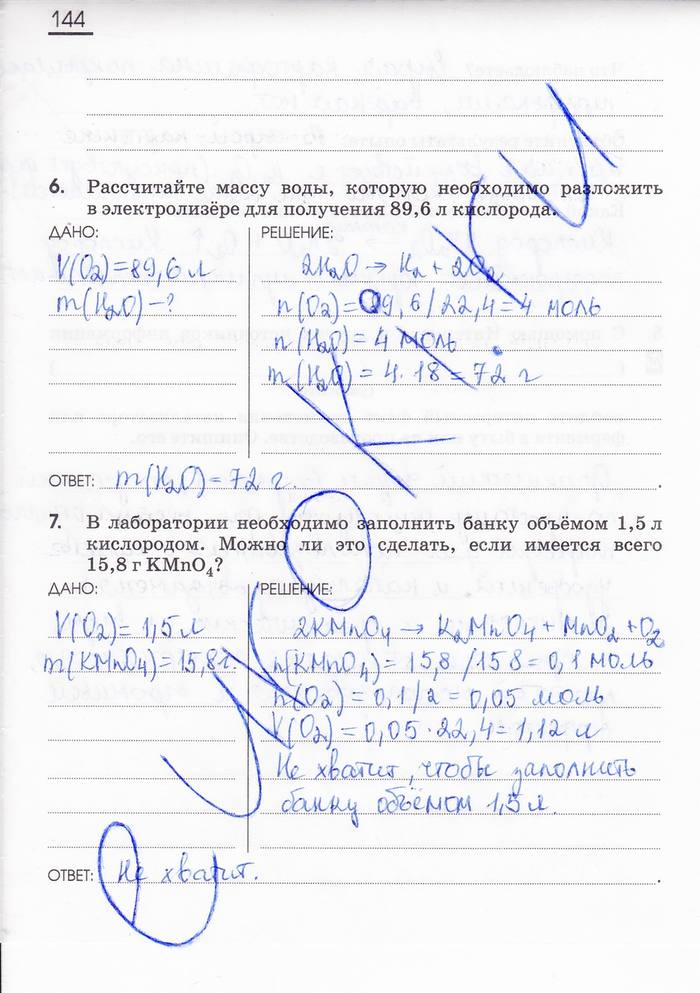 144
6. Рассчитайте массу воды, которую необходимо разложить
в электролизёре для получения 89,6 л кислорода.
ДАНО:
РЕШЕНИЕ:
V(O₂)=89,6 л
2H₂O → H₂ + 2O₂
m(H₂O) – ?
n(O₂)= 89,6/22,4=4 моль
n(H₂O)=4 моль
m(H₂O)=4·18=72 г
ОТВЕТ: m(H₂O)=72 г.
7. В лаборатории необходимо заполнить банку объёмом 1,5 л
кислородом. Можно ли это сделать, если имеется всего
15,8 г KMnO₄?
ДАНО:
РЕШЕНИЕ:
V(O₂)=1,5 л
2KMnO₄ → K₂MnO₄+MnO₂+O₂
m(KMnO₄)=15,8г.
n(KMnO₄)=15,8/158=0,1 моль
n(O₂)=0,1/2=0,05 моль
V(O₂)=0,05·22,4=1,12 л
Не хватит, чтобы заполнить
банку объёмом 1,5 л.
ОТВЕТ: Не хватит.